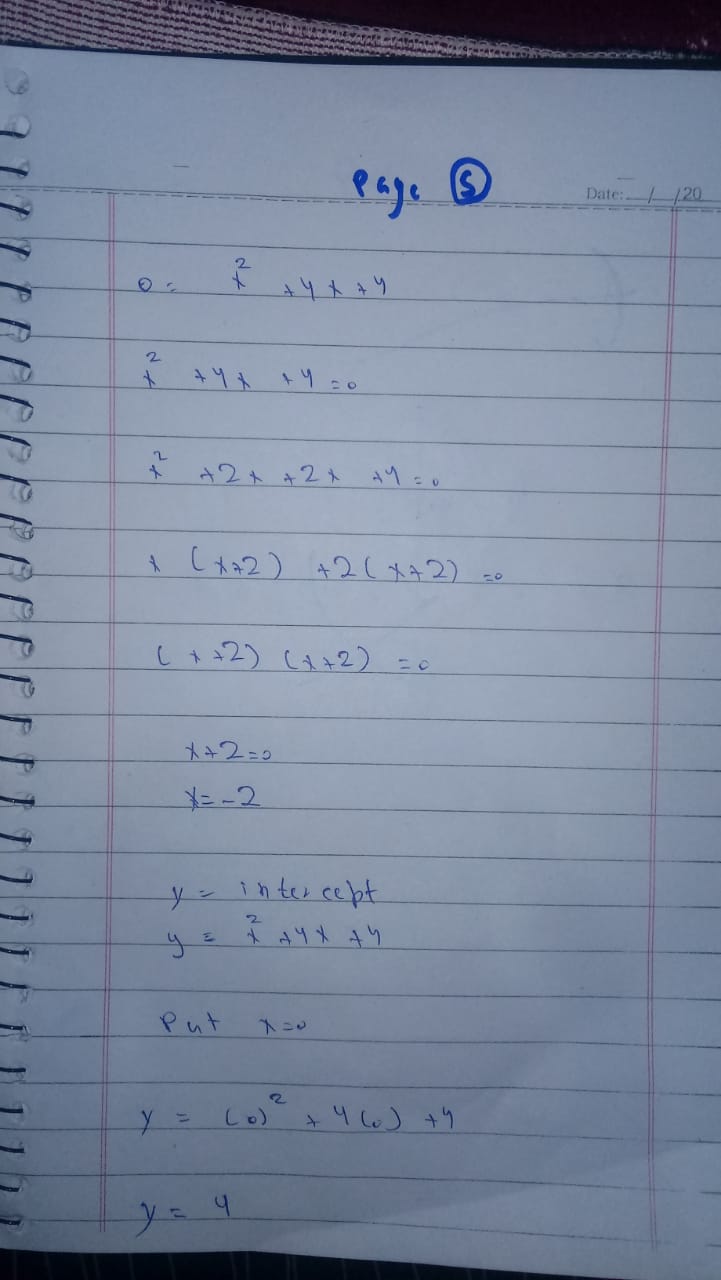 Page 5
Date: / /20
0 = x² + 4x + 4
x² + 4x + 4 = 0
x² + 2x + 2x + 4 = 0
x (x+2) + 2(x+2) = 0
(x+2) (x+2) = 0
x+2=0
x=-2
y = intercept
y = x² + 4x + 4
Put x=0
y = (0)² + 4(0) + 4
y = 4